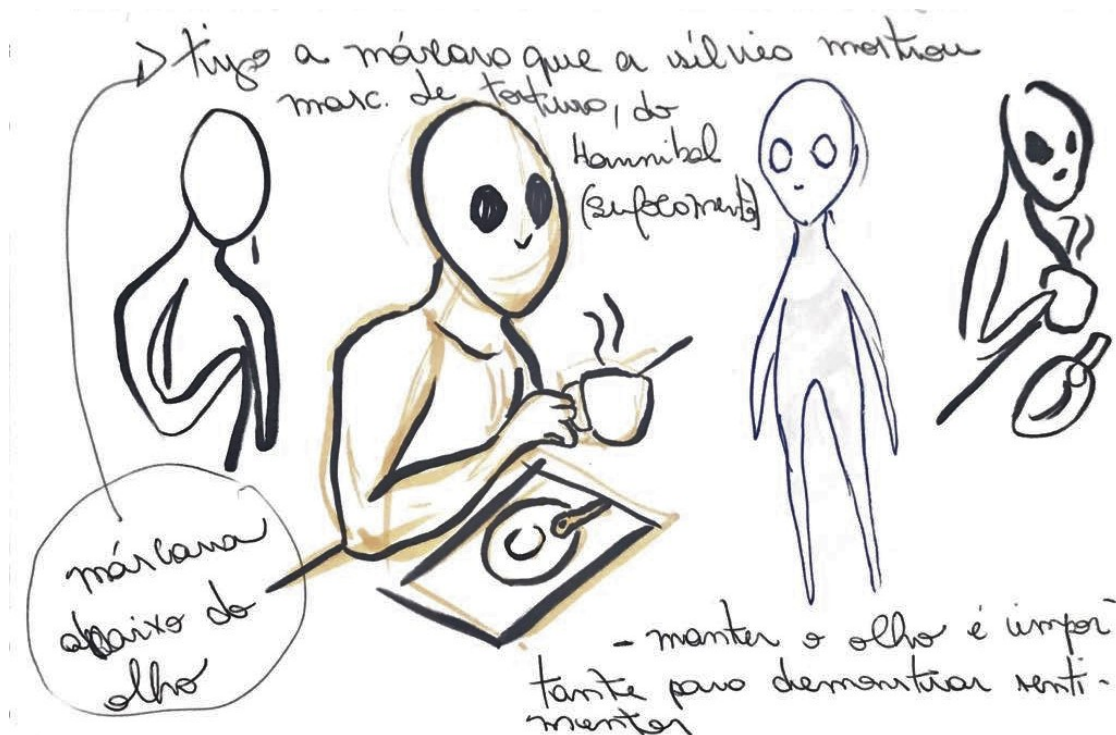 tipo a máscara que a sílvia mostrou
masc. de tortura, do
Hannibal
(sufocamento)
máscara
abaixo do
olho
- manter o olho é impor-
tante para demonstrar senti-
mentos